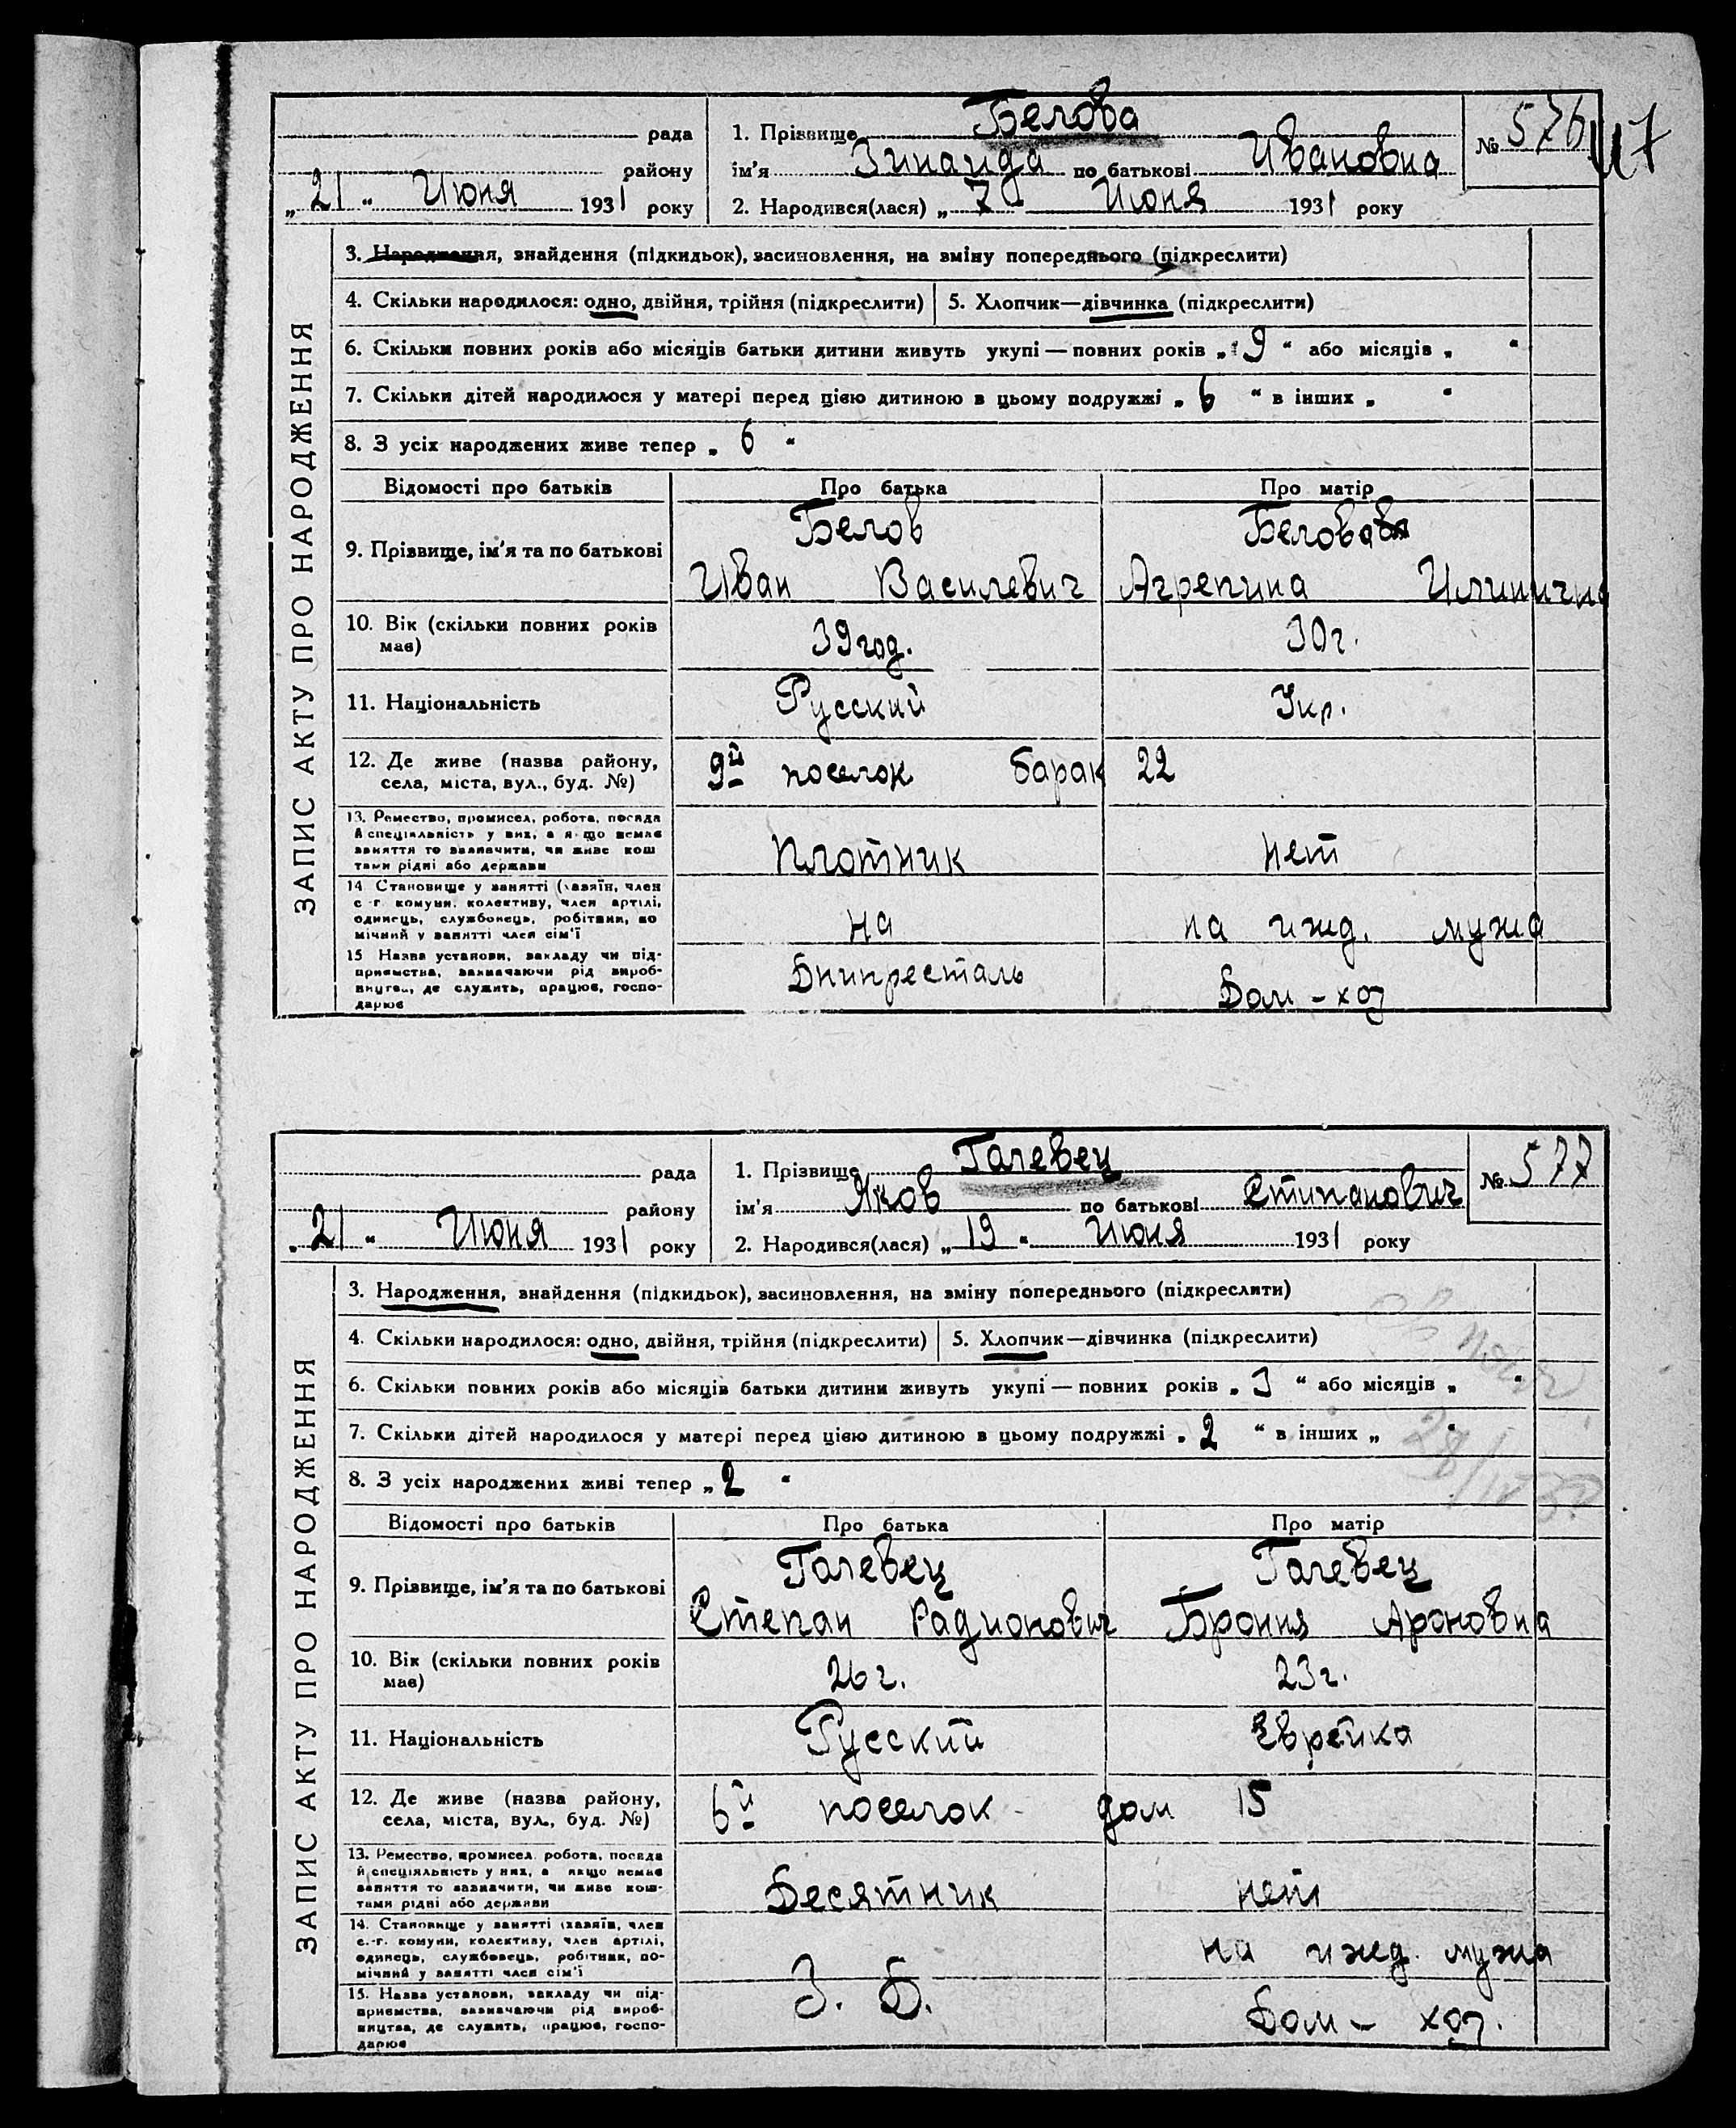 рада
1. Прізвище Белова
№ 576 117
району
ім'я Зинаида по батькові Ивановна
„21“ Июня 1931 року
2. Народився(лася) „7“ Июня 1931 року
ЗАПИС АКТУ ПРО НАРОДЖЕННЯ
3. Народження, знайдення (підкидьок), засиновлення, на зміну попереднього (підкреслити)
4. Скільки народилося: одно, двійня, трійня (підкреслити)
5. Хлопчик—дівчинка (підкреслити)
6. Скільки повних років або місяців батьки дитини живуть укупі — повних років „9“ або місяців „ “
7. Скільки дітей народилося у матері перед цією дитиною в цьому подружжі „6“ в інших „ “
8. З усіх народжених живе тепер „6“
Відомості про батьків Про батька Про матір
9. Прізвище, ім'я та по батькові
Белов
Иван Василевич
Белова
Агрепина Илинична
10. Вік (скільки повних років має)
39 год. 30 г.
11. Національність
Русский Укр.
12. Де живе (назва району,
села, міста, вул., буд. №)
9й поселок барак 22
13. Ремество, промисел, робота, посада
й спеціяльність у них, а якщо немає
заняття то зазначити, чи живе кош
тами рідні або держави
Плотник нет
14 Становище у занятті (хазяїн, член
с.-г. комуни, колективу, член артілі,
одинець, службовець, робітник, по
мічний у занятті член сім'ї
на на ижд. мужа
15 Назва установи, закладу чи під-
приємства, зазначаючи рід вироб-
ництва, де служить, працює, госпо-
дарює
Днипресталь Дом-хоз
рада
1. Прізвище Галевец
№ 577
району
ім'я Яков по батькові Стипанович
„21“ Июня 1931 року
2. Народився(лася) „19“ Июня 1931 року
ЗАПИС АКТУ ПРО НАРОДЖЕННЯ
3. Народження, знайдення (підкидьок), засиновлення, на зміну попереднього (підкреслити)
4. Скільки народилося: одно, двійня, трійня (підкреслити)
5. Хлопчик—дівчинка (підкреслити)
6. Скільки повних років або місяців батьки дитини живуть укупі — повних років „3“ або місяців „ “
7. Скільки дітей народилося у матері перед цією дитиною в цьому подружжі „2“ в інших „ “
8. З усіх народжених живі тепер „2“
Відомості про батьків Про батька Про матір
9. Прізвище, ім'я та по батькові
Галевец
Степан Радионович
Галевец
Брония Ароновна
10. Вік (скільки повних років має)
26 г. 23 г.
11. Національність
Русский Еврейка
12. Де живе (назва району,
села, міста, вул., буд. №)
6й поселок дом 15
13. Ремество, промисел, робота, посада
й спеціяльність у них, а якщо немає
заняття то зазначити, чи живе кош-
тами рідні або держави
Десятник нет
14. Становище у занятті (хазяїн, член
с.-г. комуни, колективу, член артілі,
одинець, службовець, робітник, по-
мічний у занятті член сім'ї
на ижд. мужа
15. Назва установи, закладу чи під-
приємства, зазначаючи рід вироб-
ництва, де служить, працює, госпо-
дарює
З. Б. Дом - хоз.